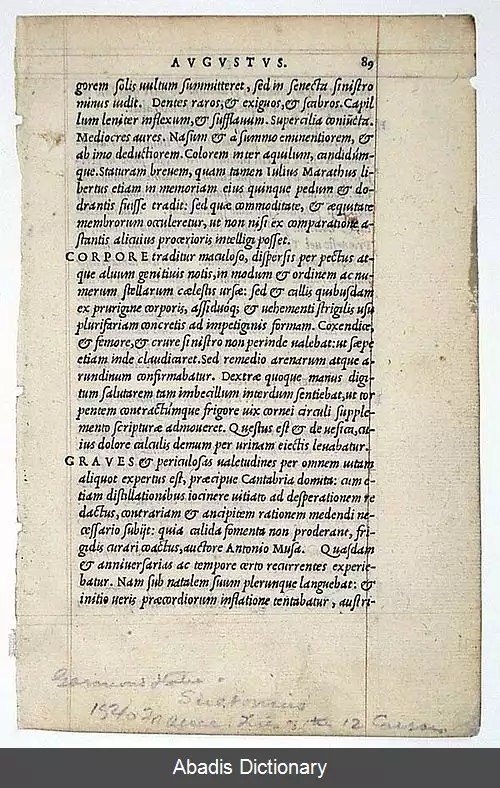 AVGVSTVS. 89
gorem solis uultum summitteret, sed in senecta sinistro
minus uidit. Dentes raros, & exiguos, & scabros. Capil
lum leniter inflexum, & sufflauum. Supercilia coniūcta.
Mediocres aures. Nasum & à summo eminentiorem, &
ab imo deductiorem. Colorem inter aquilum, candidúm-
que. Staturam breuem, quam tamen Iulius Marathus li
bertus etiam in memoriam eius quinque pedum & do-
drantis fuisse tradit: sed quæ commoditate, & æquitate
membrorum occuleretur, ut non nisi ex comparatione a-
stantis alicuius procerioris intelligi posset.
CORPORE traditur maculoso, dispersis per pectus at-
que aluum genitiuis notis, in modum & ordinem ac nu-
merum stellarum cælestis ursæ: sed & callis quibusdam
ex prurigine corporis, assiduoq; & uehementi strigilis usu
plurifariam concretis ad impetiginis formam. Coxendice,
& femore, & crure sinistro non perinde ualebat: ut sæpe
etiam inde claudicaret. Sed remedio arenarum atque a-
rundinum confirmabatur. Dextræ quoque manus digi-
tum salutarem tam imbecillum interdum sentiebat, ut tor
pentem contractúmque frigore uix cornei circuli supple-
mento scripturæ admoueret. Questus est & de uesica, cu-
ius dolore calculis demum per urinam eiectis leuabatur.
GRAVES & periculosas ualetudines per omnem uitam
aliquot expertus est, præcipue Cantabria domita: cum e-
tiam distillationibus iocinere uitiato ad desperationem re
dactus, contrariam & ancipitem rationem medendi ne-
cessario subijt: quia calida fomenta non proderant, fri-
gidis curari coactus, auctore Antonio Musa. Quasdam
& anniuersarias ac tempore certo recurrentes experie-
batur. Nam sub natalem suum plerunque languebat: &
initio ueris præcordiorum inflatione tentabatur, austri-
Suetonius
1540 France. 12 Caesars.
Abadis Dictionary